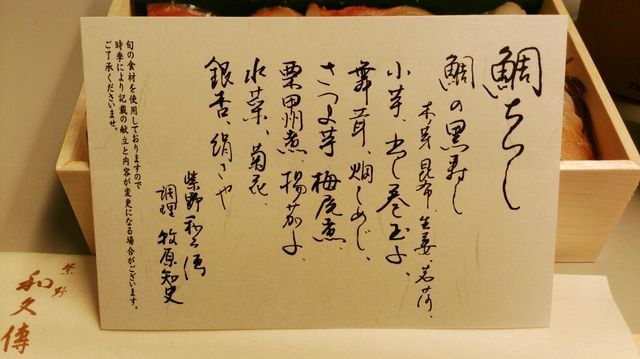 鯛ちらし
鯛の黒寿し
木の芽、昆布、生姜、茗荷、
小芋、出し巻玉子、
舞茸、畑しめじ、
さつま芋梅尻煮、
栗甲州煮、揚茄子、
水菜、菊花、
銀杏、絹さや
紫野和久傳
調理 牧原知史
旬の食材を使用しておりますので
時季により記載の献立と内容が変更になる場合がございます。
ご了承くださいませ。
紫野
和久傳